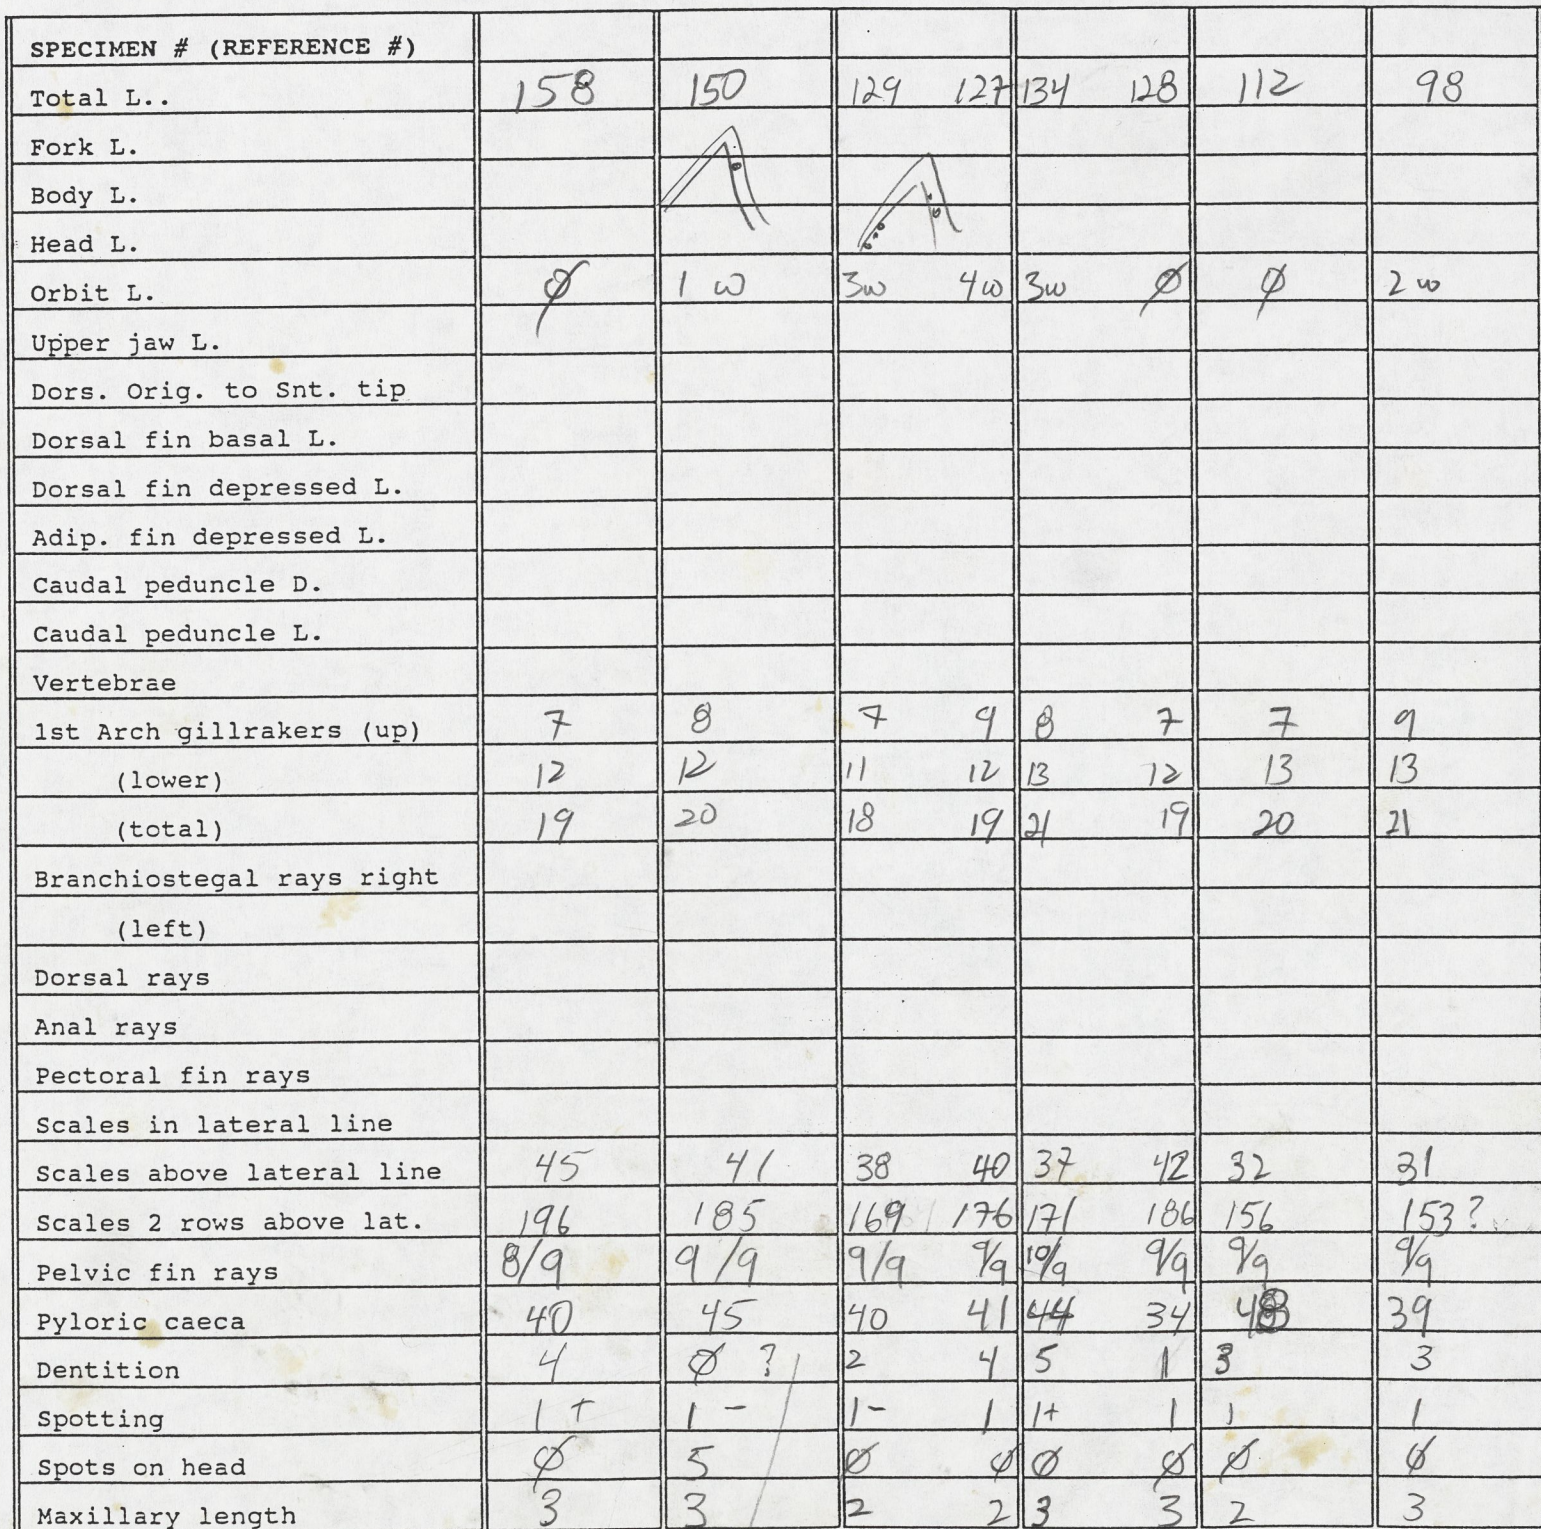 SPECIMEN # (REFERENCE #)
Total L.. 158 150 129 127 134 128 112 98
Fork L.
Body L.
Head L.
Orbit L. Ø 1 w 3w 4w 3w Ø Ø 2 w
Upper jaw L.
Dors. Orig. to Snt. tip
Dorsal fin basal L.
Dorsal fin depressed L.
Adip. fin depressed L.
Caudal peduncle D.
Caudal peduncle L.
Vertebrae
1st Arch gillrakers (up) 7 8 7 9 8 7 7 9
(lower) 12 12 11 12 13 12 13 13
(total) 19 20 18 19 21 19 20 21
Branchiostegal rays right
(left)
Dorsal rays
Anal rays
Pectoral fin rays
Scales in lateral line
Scales above lateral line 45 41 38 40 37 42 32 31
Scales 2 rows above lat. 196 185 169 176 171 186 156 153?
Pelvic fin rays 8/9 9/9 9/9 9/9 10/9 9/9 9/9 9/9
Pyloric caeca 40 45 40 41 44 34 48 39
Dentition 4 Ø ? 2 4 5 1 3 3
Spotting 1+ 1- 1- 1 1+ 1 1 1
Spots on head Ø 5 Ø Ø Ø Ø Ø Ø
Maxillary length 3 3 2 2 3 3 2 3